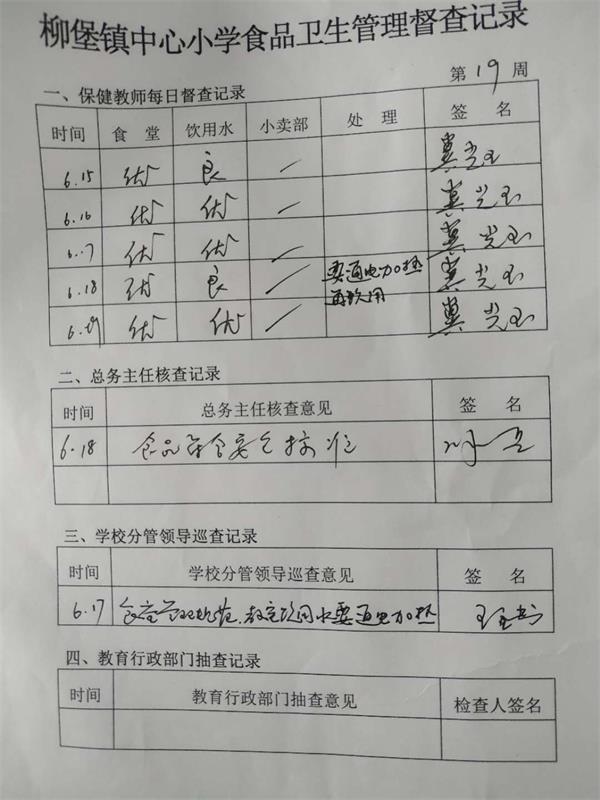 柳堡镇中心小学食品卫生管理督查记录
第19周
一、保健教师每日督查记录
时间 食堂 饮用水 小卖部 处理 签名
6.15 优 良 / 冀光玉
6.16 优 优 / 冀光玉
6.17 优 优 / 冀光玉
6.18 优 良 / 要通电加热 冀光玉
再饮用
6.19 优 优 / 冀光玉
二、总务主任核查记录
时间 总务主任核查意见 签名
6.18 食品符合安全标准
三、学校分管领导巡查记录
时间 学校分管领导巡查意见 签名
6.17 食堂管理规范，教室饮用水要通电加热
四、教育行政部门抽查记录
时间 教育行政部门抽查意见 检查人签名